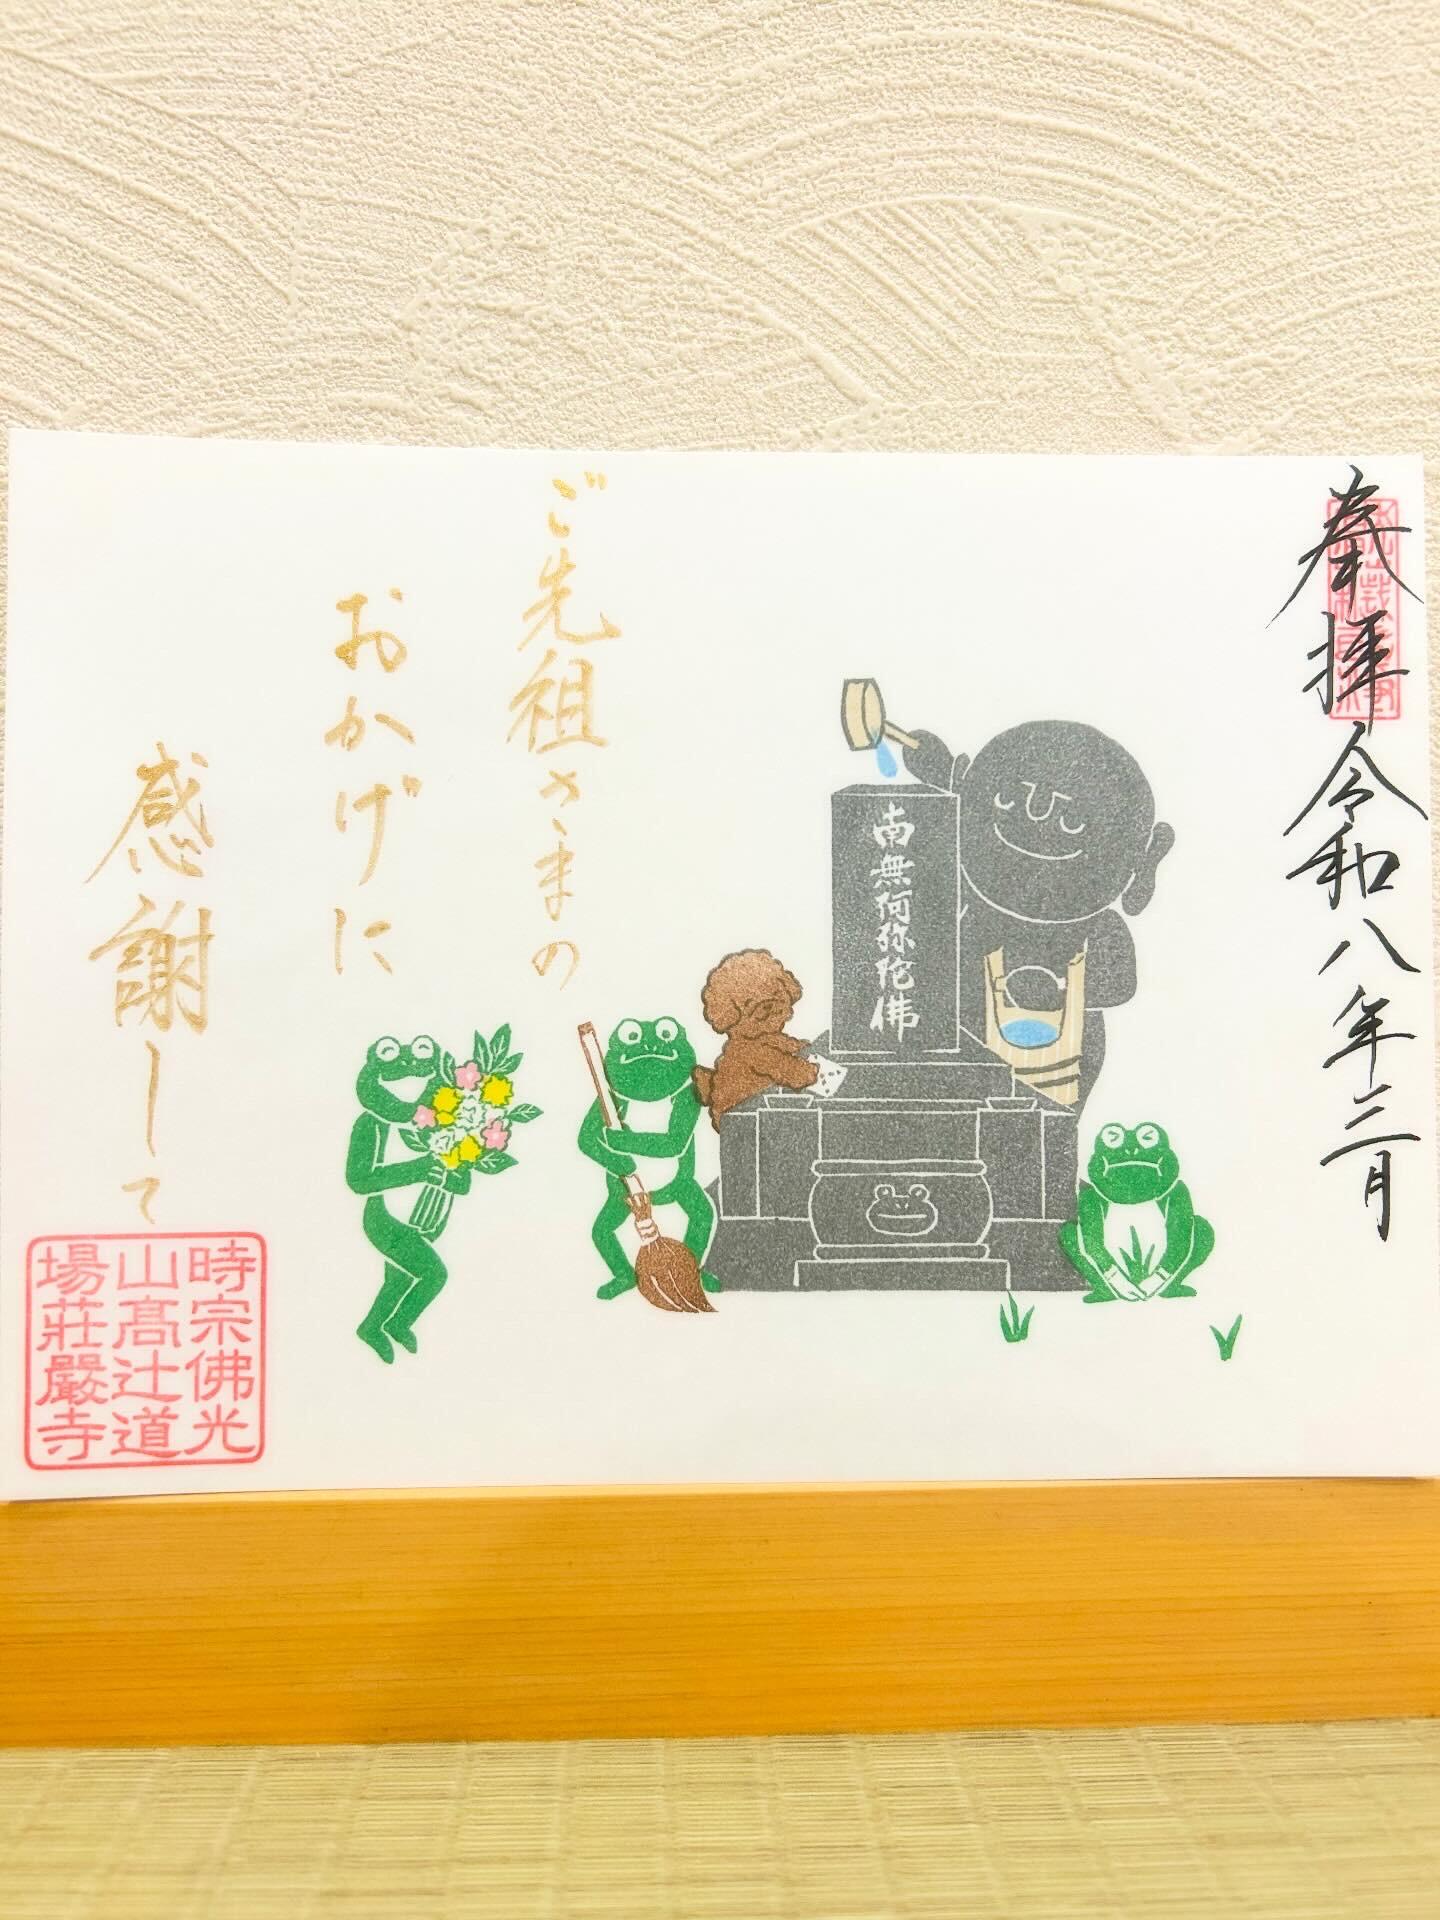 奉拝 令和八年三月
南無阿弥陀佛
ご先祖さまの
おかげに
感謝して
時宗佛光
山髙辻道
場莊嚴寺